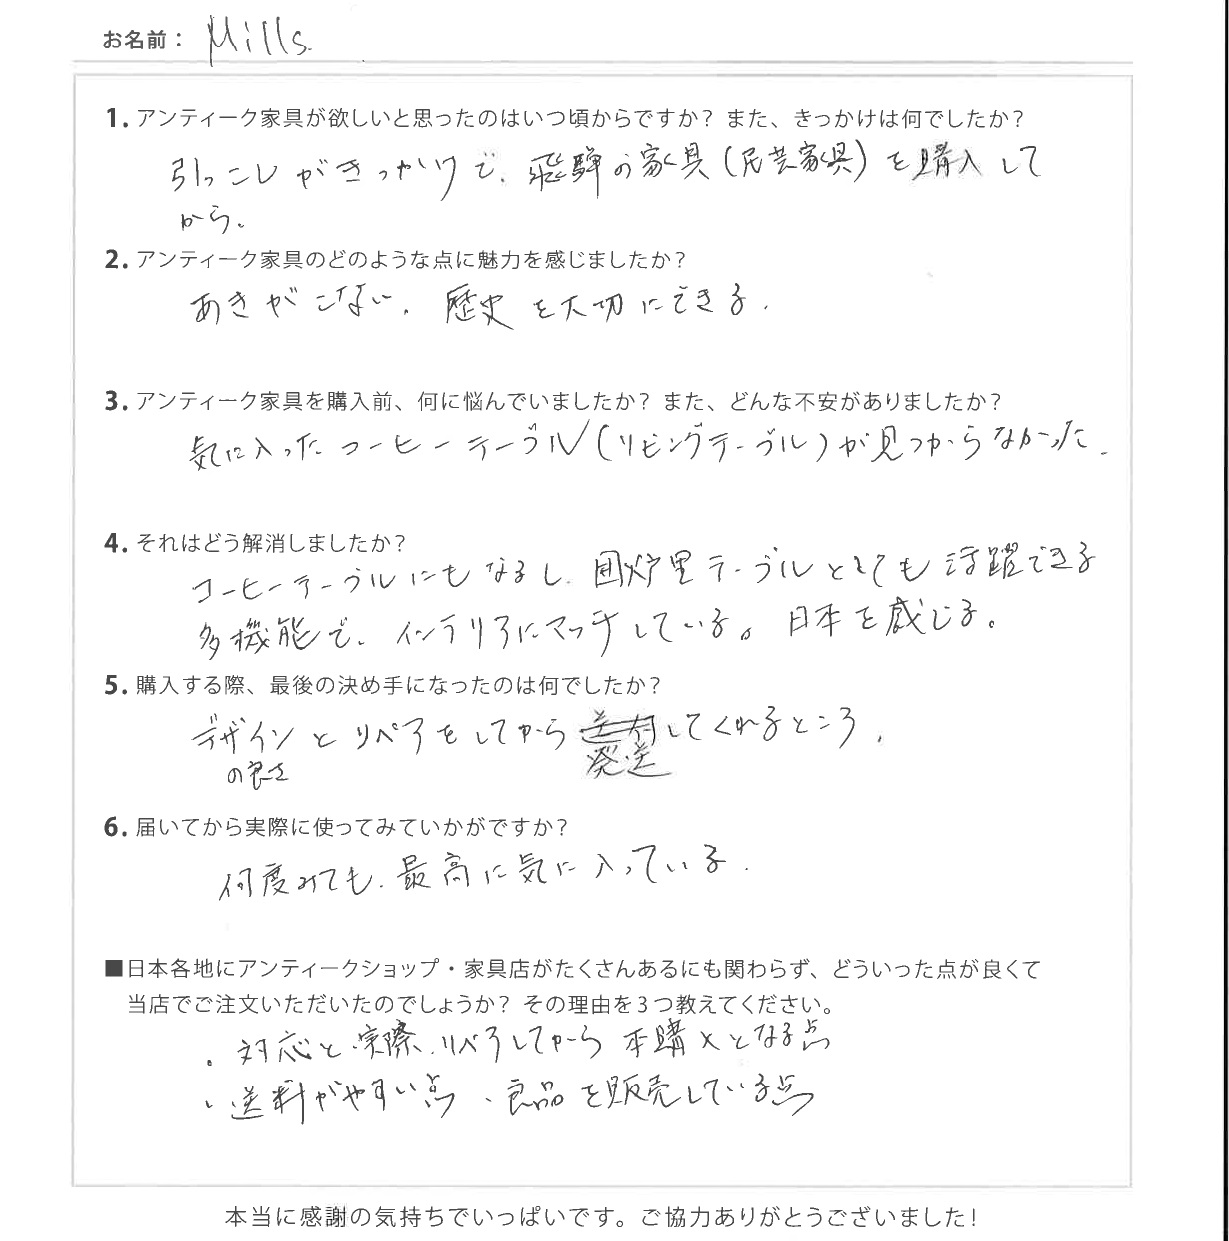 お名前： Mills.
1. アンティーク家具が欲しいと思ったのはいつ頃からですか？ また、きっかけは何でしたか？
引っこしがきっかけで、飛騨の家具（民芸家具）を購入して
から。
2. アンティーク家具のどのような点に魅力を感じましたか？
あきがこない。歴史を大切にできる。
3. アンティーク家具を購入前、何に悩んでいましたか？ また、どんな不安がありましたか？
気に入ったコーヒーテーブル（リビングテーブル）が見つからなかった。
4. それはどう解消しましたか？
コーヒーテーブルにもなるし、囲炉裏テーブルとしても活躍できる
多機能で、インテリアにマッチしている。日本を感じる。
5. 購入する際、最後の決め手になったのは何でしたか？
デザインとリペアをしてから送付してくれるところ。
の良さ 発送
6. 届いてから実際に使ってみていかがですか？
何度みても、最高に気に入っている。
■日本各地にアンティークショップ・家具店がたくさんあるにも関わらず、どういった点が良くて
当店でご注文いただいたのでしょうか？ その理由を３つ教えてください。
・対応と実際、リペアしてから本購入となる点
・送料がやすい点 ・良品を販売している点
本当に感謝の気持ちでいっぱいです。ご協力ありがとうございました！